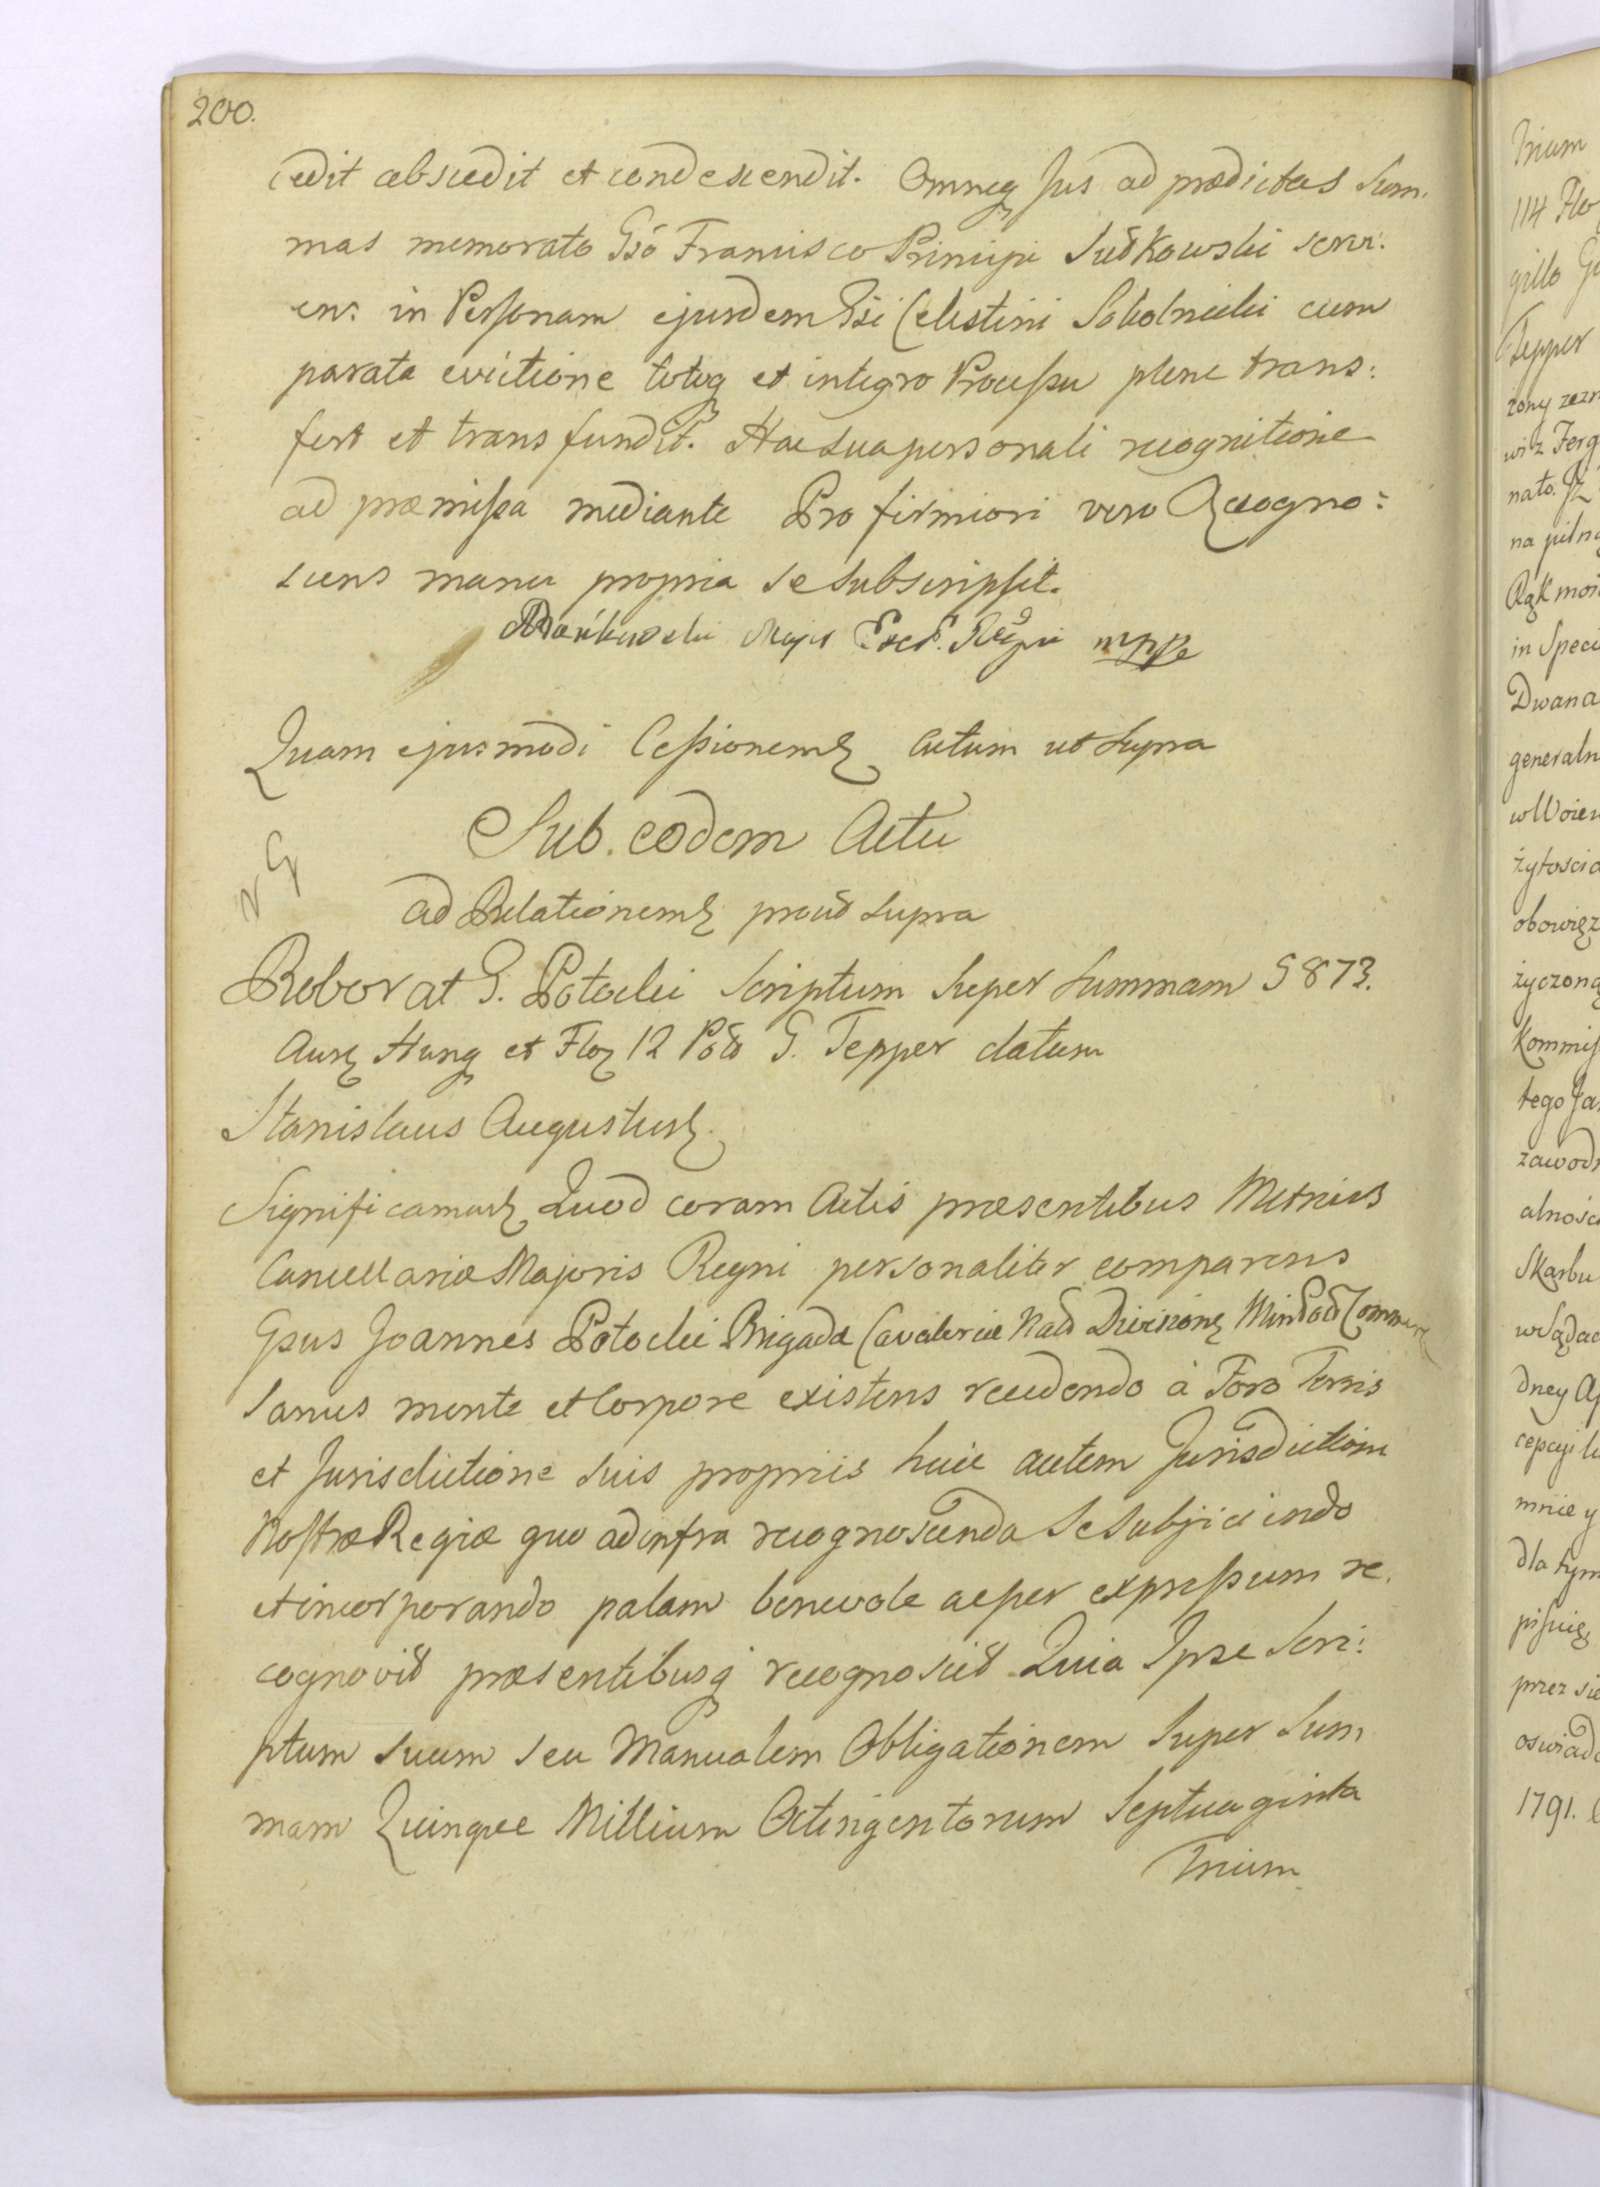 200.
cedit abscedit et condescendit. Omneq Jus ad prædictas Sum.
mas memorato Gso Francisco Principi Sułkowski servi:
ens in Personam ejusdem Gsi Celestini Sokolnicki cum
parata evictione totoq et integro Processu plene trans:
fert et transfundit. Hac sua personali recognitione
ad præmissa mediante Pro firmiori vero Recogno:
scens manu propria se subscripsit.
Major mppa
Quam ejusmodi Cessionem Actum ut supra
Sub eodem Actu
ad Relationem prout supra
Roborat G. Potocki Scriptum super summam 5873.
Aur Hung et Flor 12 Pol G. Tepper datum
Stanislaus Augustus
Significamus Quod coram Actis præsentibus Metrices
Cancellariæ Majoris Regni personaliter comparens
Gsus Joannes Potocki Brigada Cavaleriæ Nat Division Min Pol Commen
sanus mente et Corpore existens recedendo à Foro Terris
et Jurisdictione suis propriis huic autem Jurisdictioni
Nostræ Regiæ quo ad infra recognoscenda se subjiciendo
et incorporando palam benevole ac per expressum re.
cognovit præsentibusq recognoscit Quia Ipse Scri:
ptum suum seu Manualem Obligationem super Sum
mam Quinque Millium Octingentorum Septuaginta
Trium
Trium
114 Flo
gillo
Tepper
na pilno
in Speci
Dwana
generaln
w Woiew
obowięz
życzoną
Kommiss
tego Ja
Skarbu
w Sądac
dney Ap
mnie y
dla tym
przez sie
oswiadc
1791.